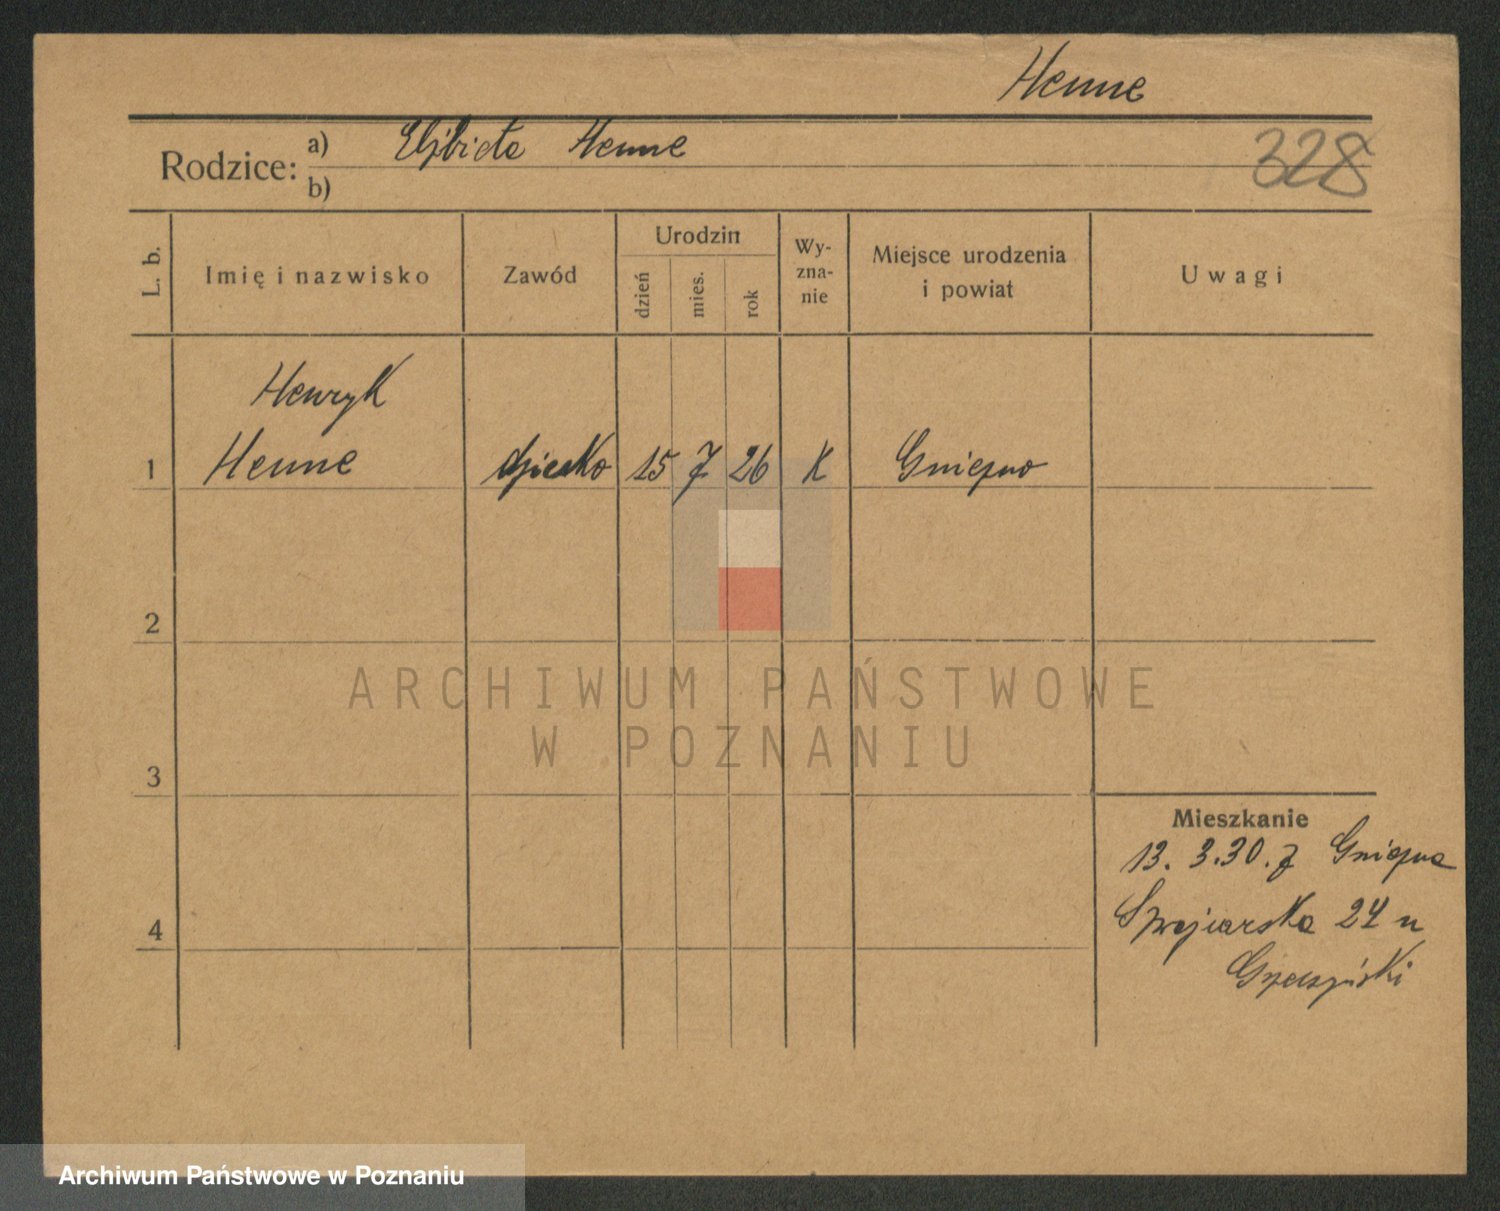 Henne
Rodzice: a) Elżbieta Henne
328
b)
L. b.
Imię i nazwisko
Zawód
Urodzin
dzień
mies.
rok
Wy-
zna-
nie
Miejsce urodzenia
i powiat
Uwagi
Henryk
1 Henne dziecko 15 7 26 K Gniezno
2
ARCHIWUM PAŃSTWOWE
W POZNANIU
3
Mieszkanie
13. 3.30. z Gniezna
24 u
4
Archiwum Państwowe w Poznaniu